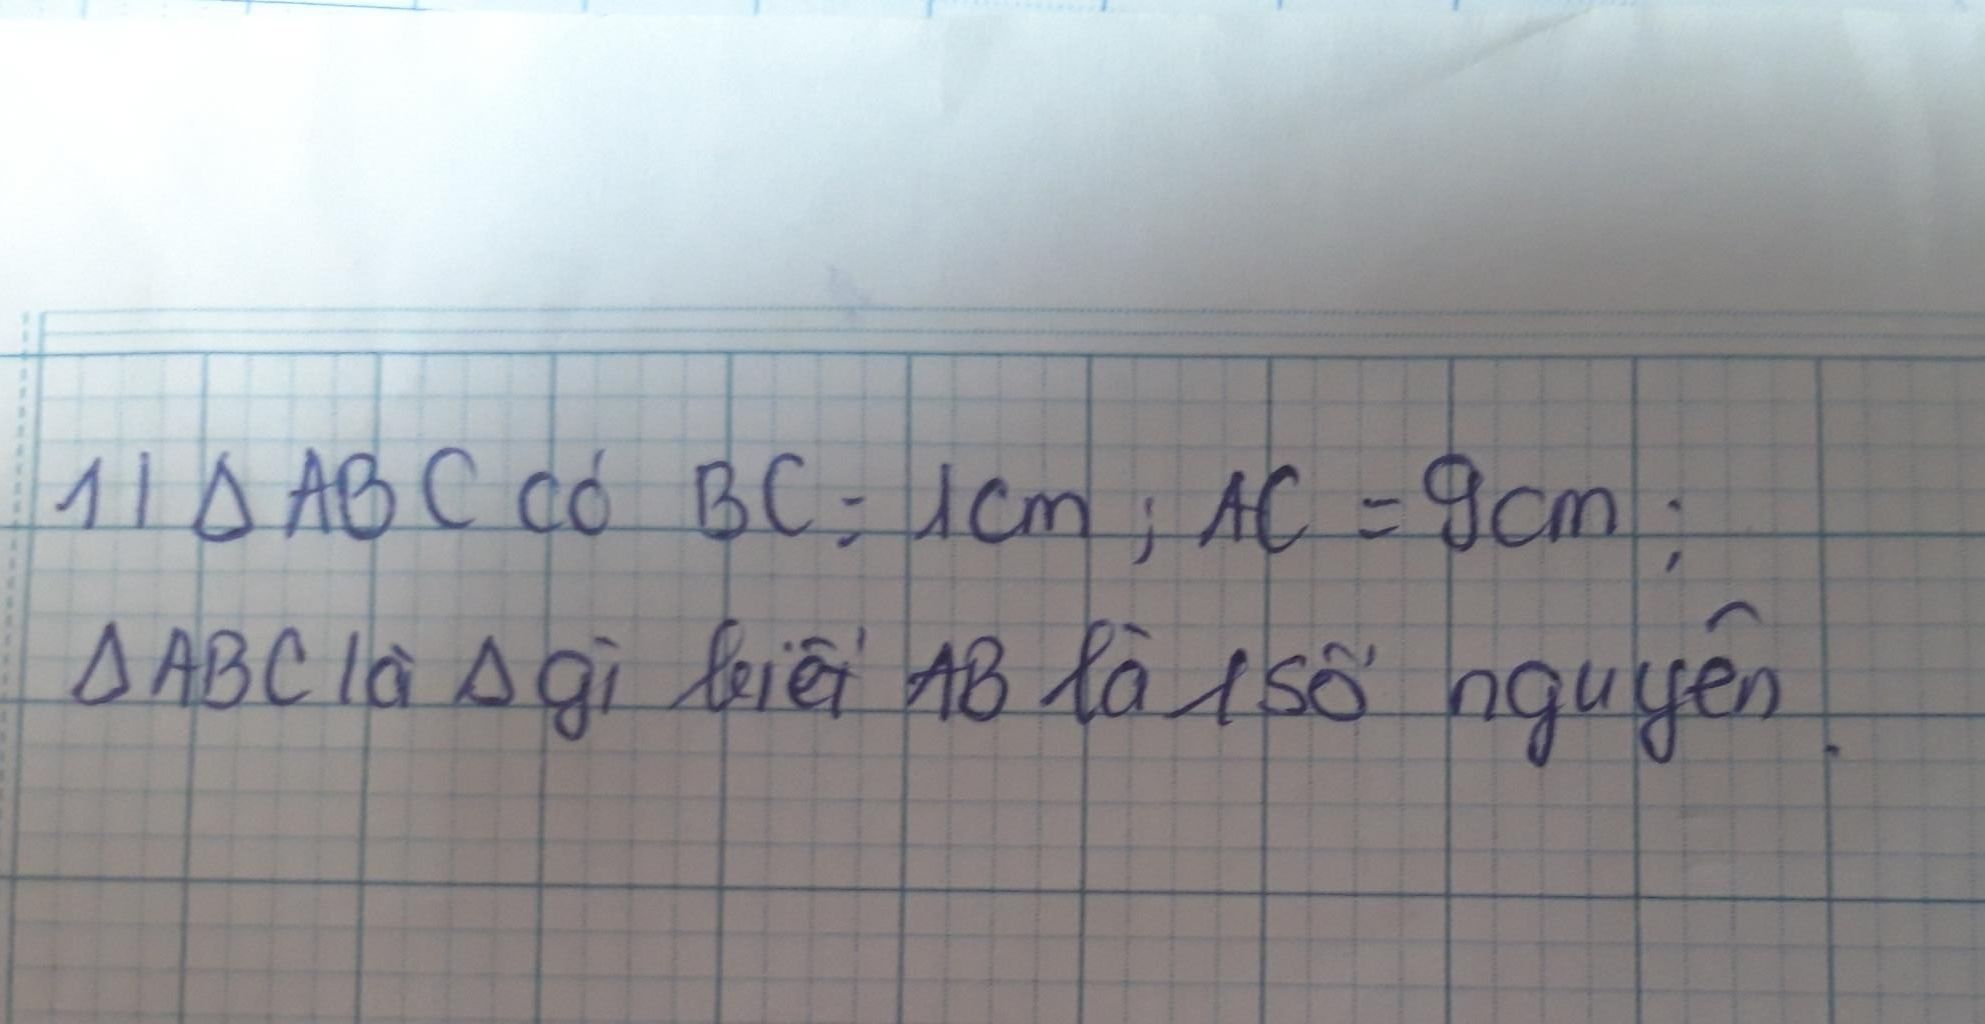 1) Δ ABC có BC = 1cm ; AC = 9cm ;
Δ ABC là Δ gì biết AB là 1 số nguyên.